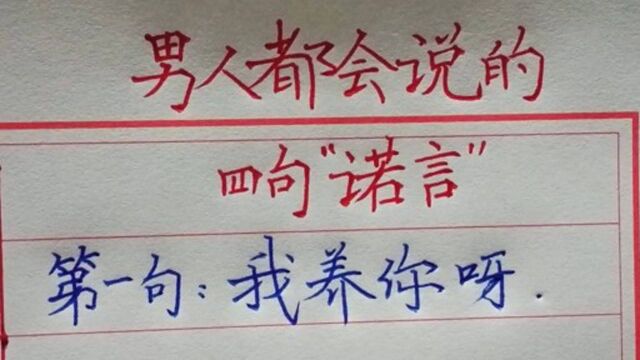 男人都会说的
四句“诺言”
第一句：我养你呀.